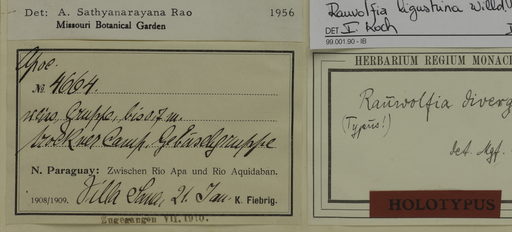 Det: A. Sathyanarayana Rao 1956
Missouri Botanical Garden
Rauwolfia ligustrina Willd
DET I. Koch
99.001.90 - IB
Apoc.
№ 4664
weiss. Gruppe, bis 0.7 m.
trockner Camp. Gebüschgruppe
N. Paraguay: Zwischen Rio Apa und Rio Aquidaban.
1908/1909. Villa Sana, 21. Jan. K. Fiebrig.
Zugegangen VII.1910.
HERBARIUM REGIUM MONAC
Rauwolfia diverg
(Typus!)
det. Mgf.
HOLOTYPUS